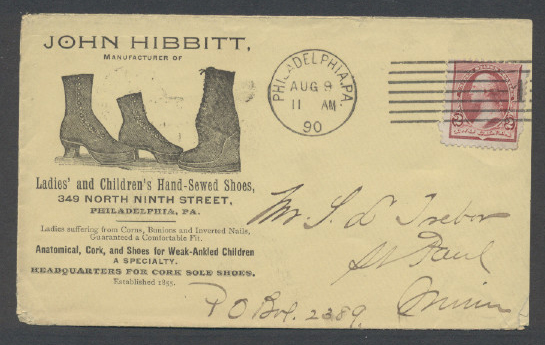 JOHN HIBBITT,
MANUFACTURER OF
Ladies' and Children's Hand-Sewed Shoes,
349 NORTH NINTH STREET,
PHILADELPHIA, PA.
Ladies suffering from Corns, Bunions and Inverted Nails,
Guaranteed a Comfortable Fit.
Anatomical, Cork, and Shoes for Weak-Ankled Children
A SPECIALTY.
HEADQUARTERS FOR CORK SOLE SHOES.
Established 1855.
PHILADELPHIA, PA.
AUG 9
11 AM
90
2 2
Mr. S. D
St Paul
Minn
P O Box. 2389.